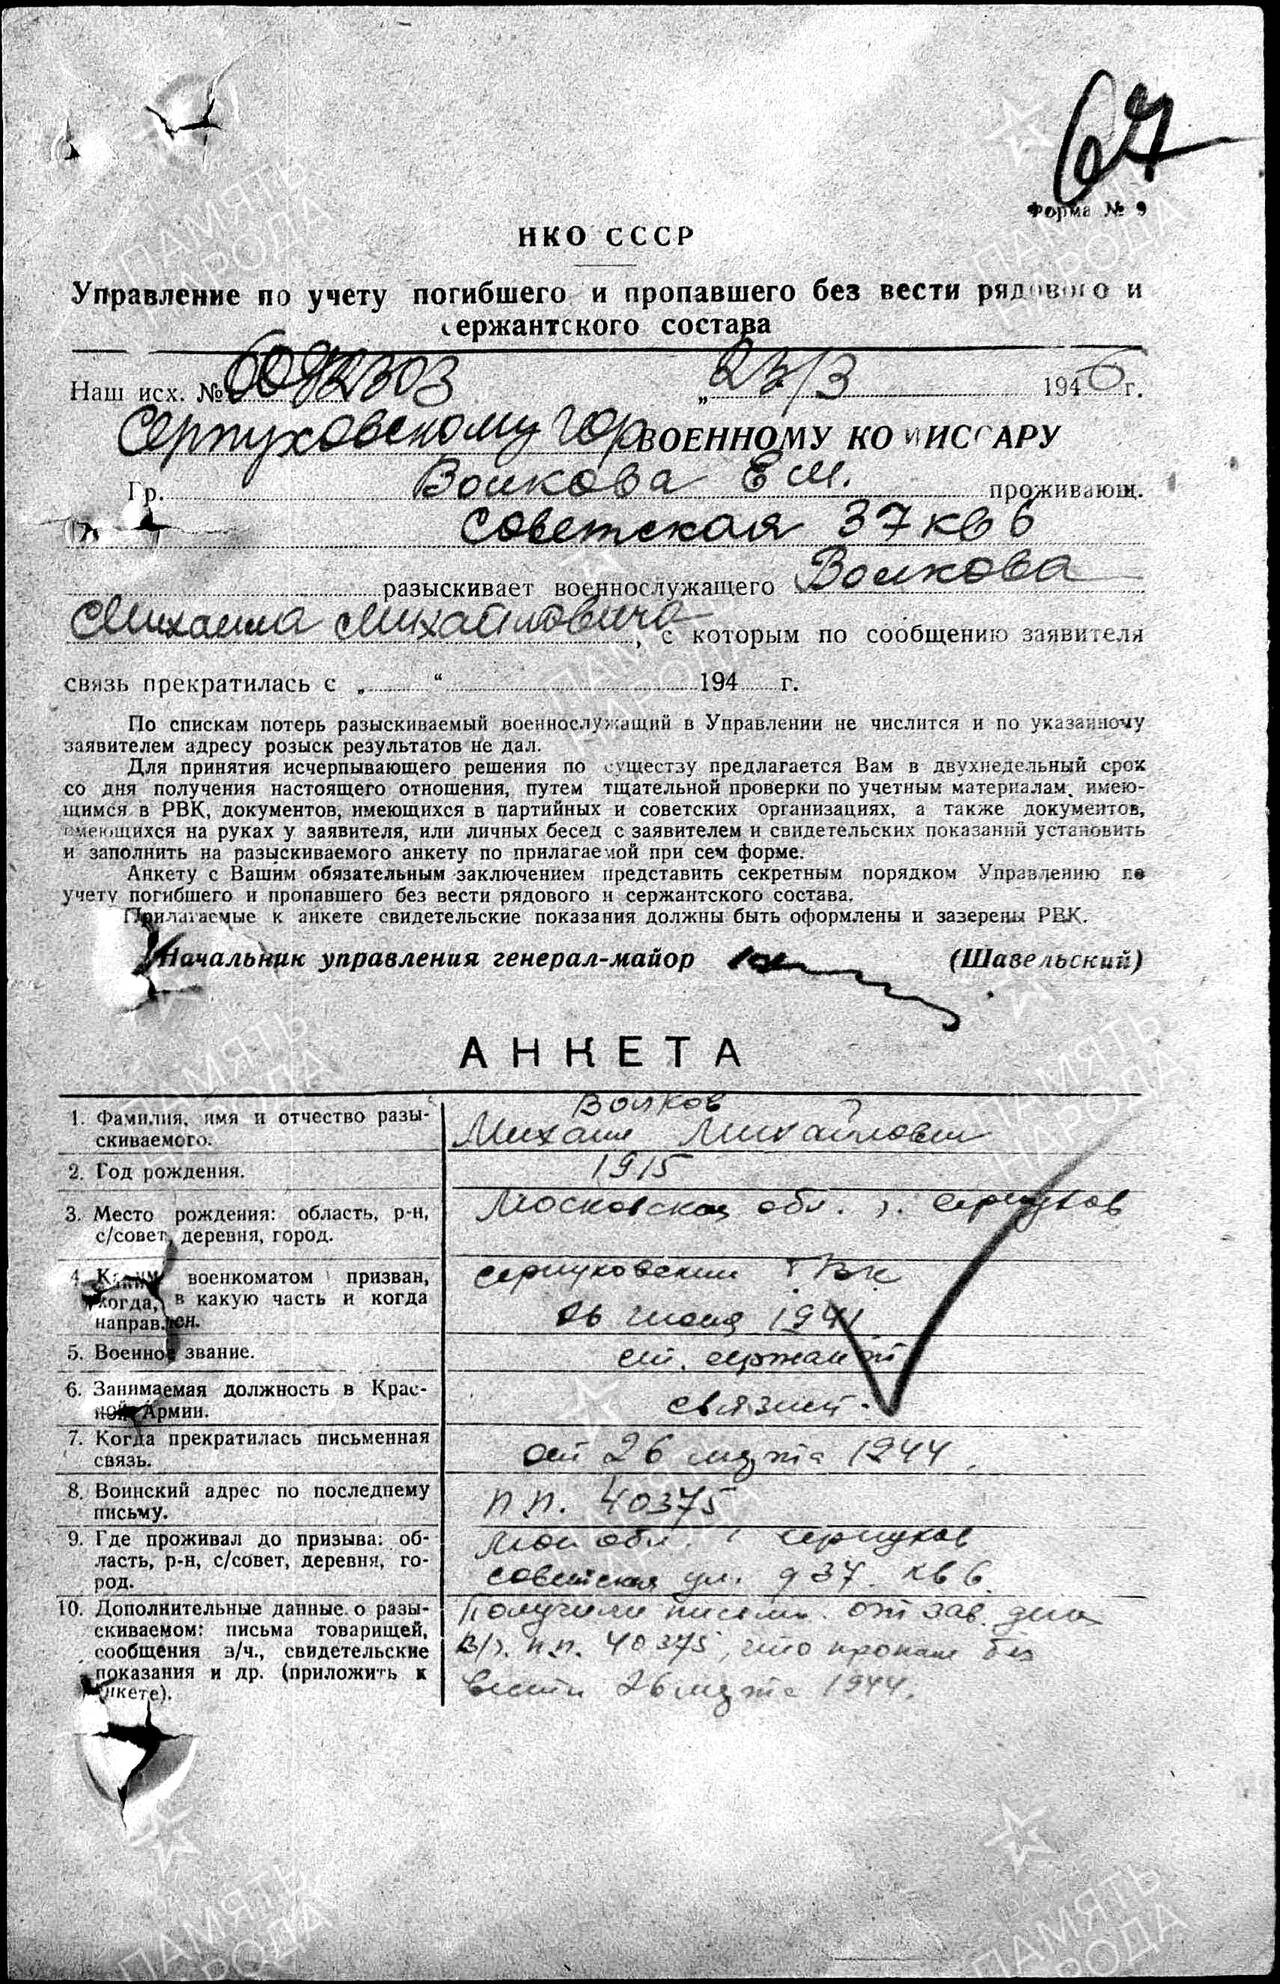 67
Форма № 9
НКО СССР
Управление по учету погибшего и пропавшего без вести рядового и
сержантского состава
Наш исх. № „23/3 1946 г.
Серпуховскому гор ВОЕННОМУ КОМИССАРУ
Гр. Волкова Е М. проживающ.
Советская 37 кв 6
разыскивает военнослужащего Волкова
Михаила Михайловича, с которым по сообщению заявителя
связь прекратилась с „ “ 194 г.
По спискам потерь разыскиваемый военнослужащий в Управлении не числится и по указанному
заявителем адресу розыск результатов не дал.
Для принятия исчерпывающего решения по существу предлагается Вам в двухнедельный срок
со дня получения настоящего отношения, путем тщательной проверки по учетным материалам, имею-
щимся в РВК, документов, имеющихся в партийных и советских организациях, а также документов,
имеющихся на руках у заявителя, или личных бесед с заявителем и свидетельских показаний установить
и заполнить на разыскиваемого анкету по прилагаемой при сем форме.
Анкету с Вашим обязательным заключением представить секретным порядком Управлению по
учету погибшего и пропавшего без вести рядового и сержантского состава.
Прилагаемые к анкете свидетельские показания должны быть оформлены и заверены РВК.
Начальник управления генерал-майор (Шавельский)
АНКЕТА
1. Фамилия, имя и отчество разы-
скиваемого.
Волков
Михаил Михайлович
2. Год рождения.
1915
3. Место рождения: область, р-н,
с/совет, деревня, город.
Московская обл. г. Серпухов
4. Каким военкоматом призван,
когда, в какую часть и когда
направлен.
Серпуховский ГВК
26 июня 1941
5. Военное звание.
ст. сержант
6. Занимаемая должность в Крас-
ной Армии.
связист
7. Когда прекратилась письменная
связь.
от 26 марта 1944.
8. Воинский адрес по последнему
письму.
п.п. 40375
9. Где проживал до призыва: об-
ласть, р-н, с/совет, деревня, го-
род.
Мос обл. г Серпухов
советская ул. д 37 кв 6
10. Дополнительные данные о разы-
скиваемом: письма товарищей,
сообщения в/ч., свидетельские
показания и др. (приложить к
анкете).
Получили письмо от зав. дел
в/ч. п.п. 40375, что пропал без
вести 26 марта 1944.
ПАМЯТЬ
НАРОДА